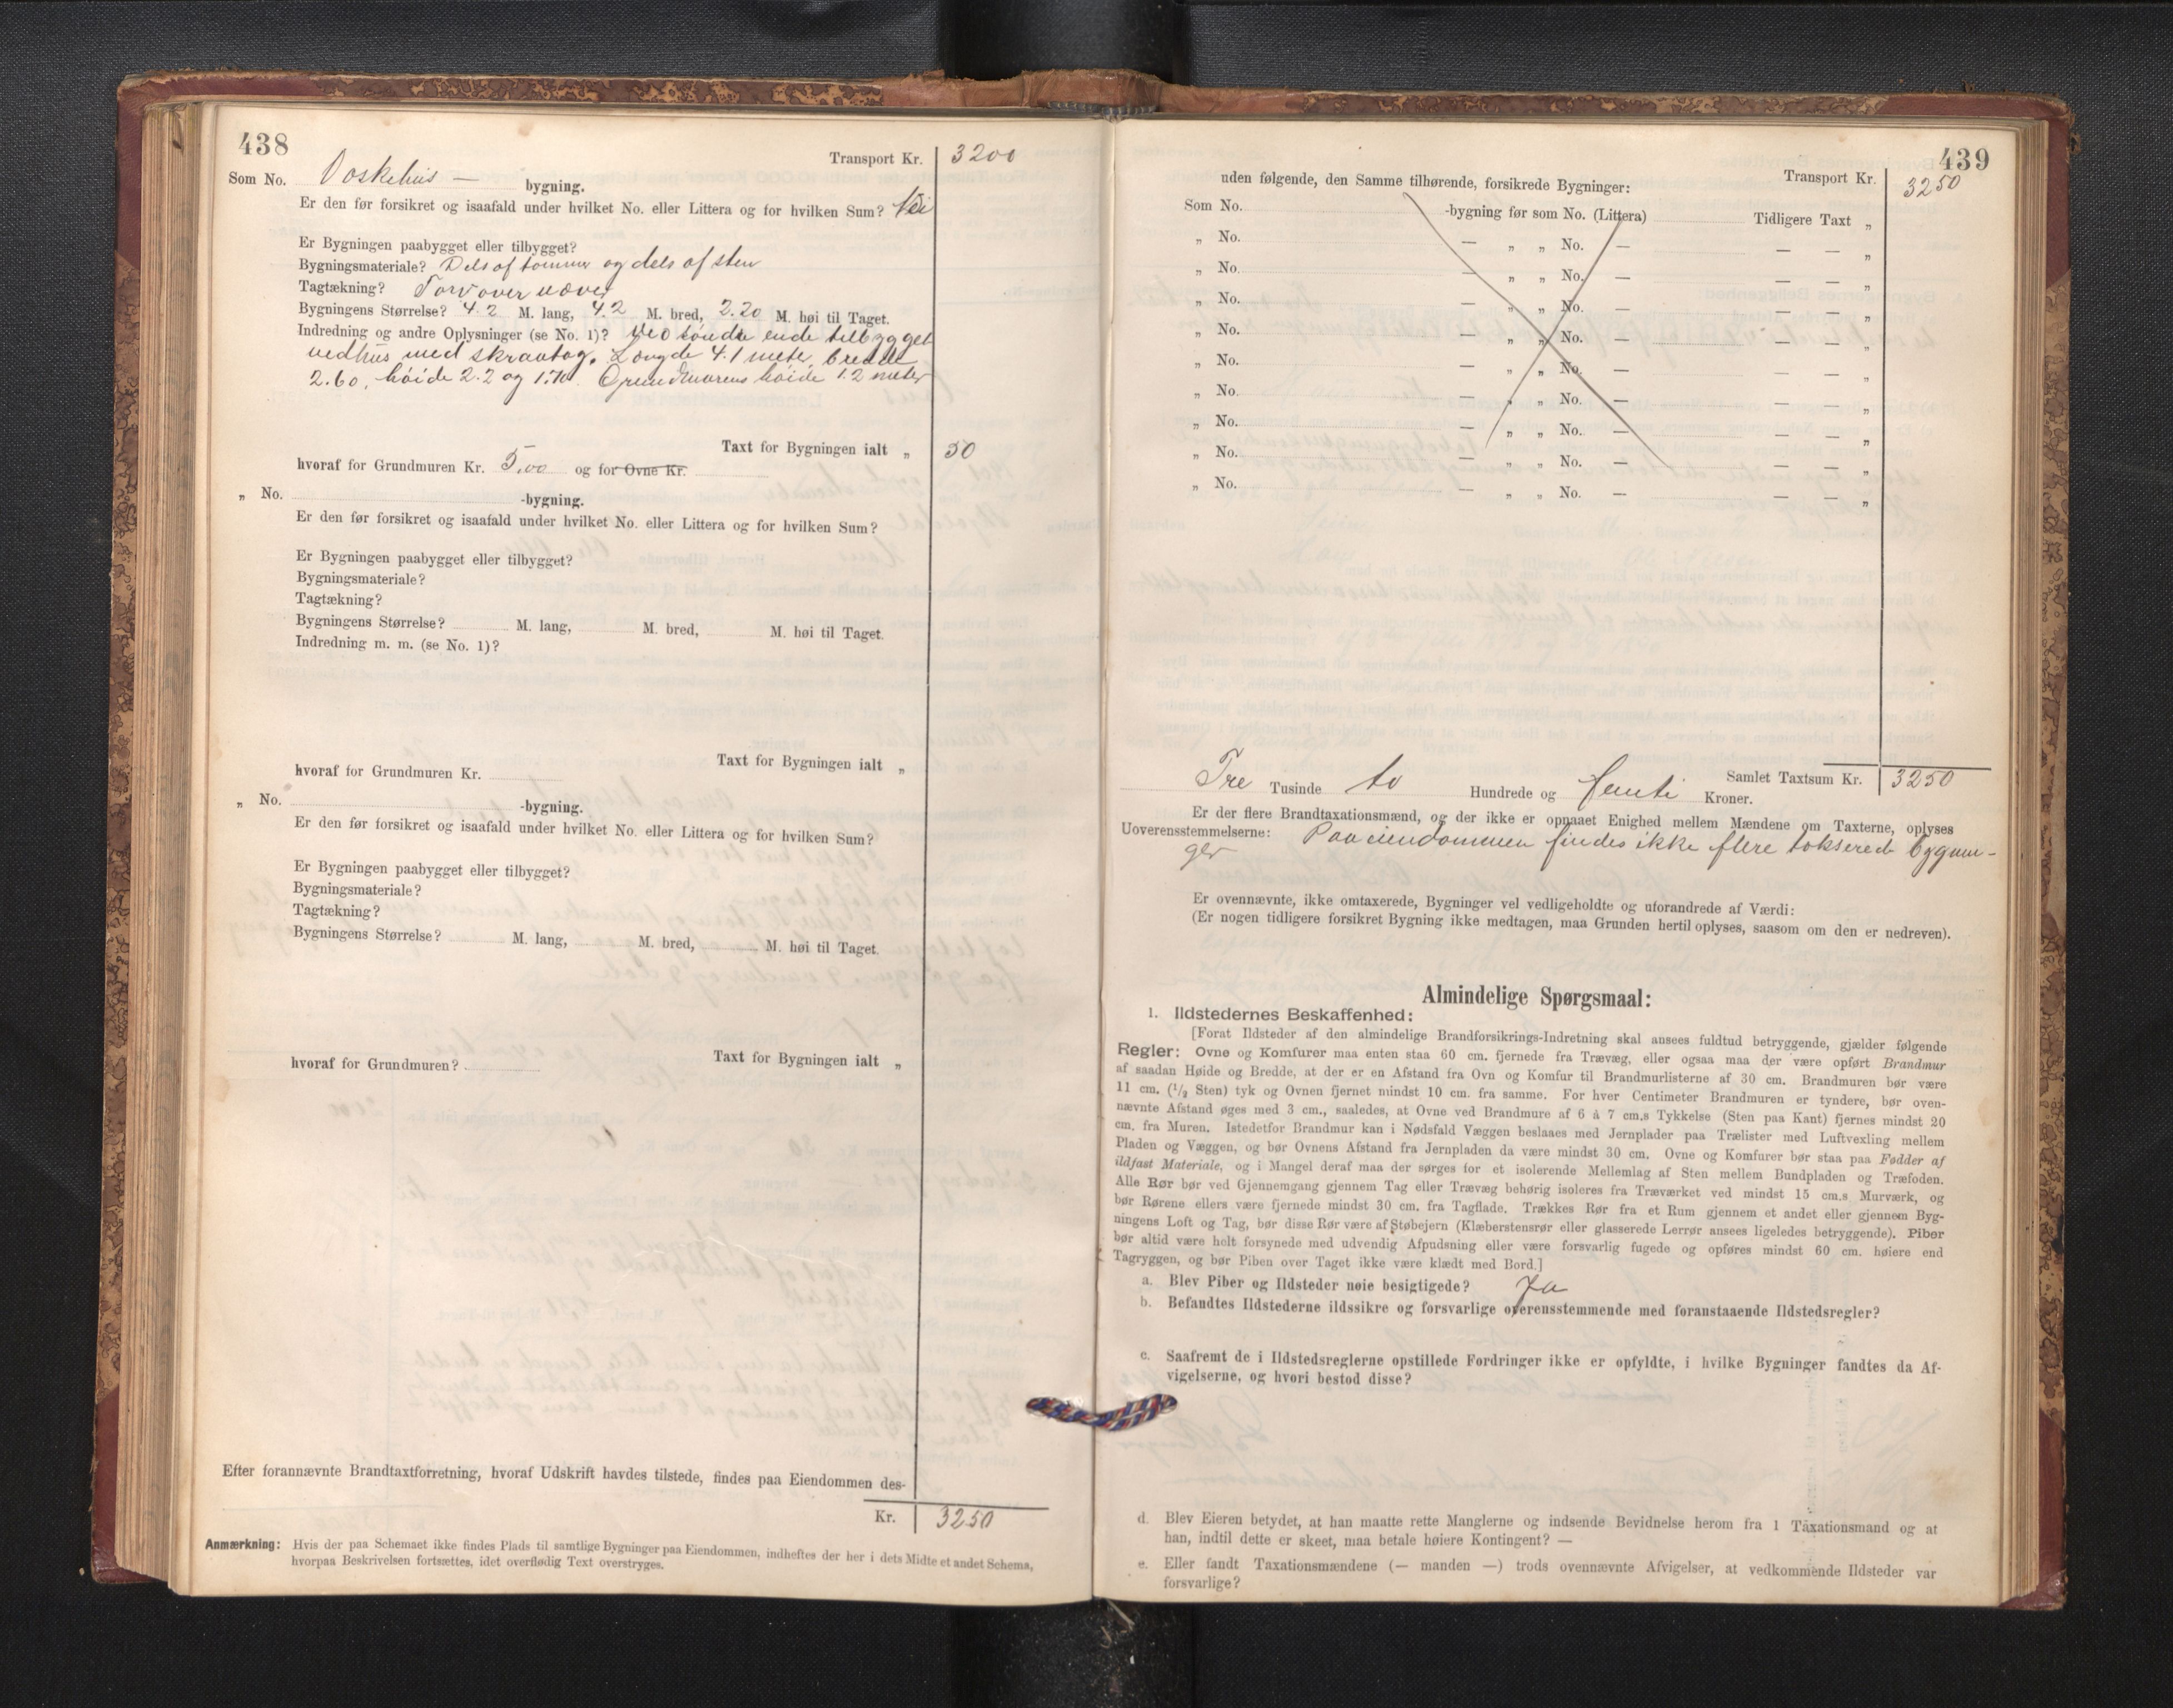 438
Transport Kr. 3200
Som No. Vaskehus — bygning.
Er den før forsikret og isaafald under hvilket No. eller Littera og for hvilken Sum? Nei
Er Bygningen paabygget eller tilbygget?
Bygningsmateriale? Dels af tømmer og dels af sten
Tagtækning? Torv over næver
Bygningens Størrelse? 4.2 M. lang, 4.2 M. bred, 2.20 M. høi til Taget.
Indredning og andre Oplysninger (se No. 1)? Ved søndre ende tilbygget
vedhus med skraatag. Længde 4.1 meter, bredde
2.60, høide 2.2 og 1.70. Grundmurens høide 1.2 meter
Taxt for Bygningen ialt „ 50
hvoraf for Grundmuren Kr. 5.00 og for Ovne Kr.
„ No. -bygning.
Er den før forsikret og isaafald under hvilket No. eller Littera og for hvilken Sum?
Er Bygningen paabygget eller tilbygget?
Bygningsmateriale?
Tagtækning?
Bygningens Størrelse? M. lang, M. bred, M. høi til Taget.
Indredning m. m. (se No. 1)?
Taxt for Bygningen ialt „
hvoraf for Grundmuren Kr.
„ No. -bygning.
Er den før forsikret og isaafald under hvilket No. eller Littera og for hvilken Sum?
Er Bygningen paabygget eller tilbygget?
Bygningsmateriale?
Tagtækning?
Bygningens Størrelse? M. lang, M. bred, M. høi til Taget.
Taxt for Bygningen ialt „
hvoraf for Grundmuren?
Efter forannævnte Brandtaxtforretning, hvoraf Udskrift havdes tilstede, findes paa Eiendommen des-
Kr. 3250
Anmærkning: Hvis der paa Schemaet ikke findes Plads til samtlige Bygninger paa Eiendommen, indheftes der her i dets Midte et andet Schema,
hvorpaa Beskrivelsen fortsættes, idet overflødig Text overstryges.
439
Transport Kr. 3250
uden følgende, den Samme tilhørende, forsikrede Bygninger:
Som No. -bygning før som No. (Littera) Tidligere Taxt „
„ No. — „ „ No. — — — „
„ No. — „ „ No. — — — „
„ No. — „ „ No. — — — „
„ No. — „ „ No. — — — „
„ No. — „ „ No. — — — „
„ No. — „ „ No. — — — „
„ No. — „ „ No. — — — „
„ No. — „ „ No. — — — „
„ No. — „ „ No. — — — „
Samlet Taxtsum Kr. 3250
Tre Tusinde to Hundrede og femti Kroner.
Er der flere Brandtaxationsmænd, og der ikke er opnaaet Enighed mellem Mændene om Taxterne, oplyses
Uoverensstemmelserne: Paa eiendommen findes ikke flere takserede bygnin-
ger
Er ovennævnte, ikke omtaxerede, Bygninger vel vedligeholdte og uforandrede af Værdi:
(Er nogen tidligere forsikret Bygning ikke medtagen, maa Grunden hertil oplyses, saasom om den er nedreven).
Almindelige Spørgsmaal:
1. Ildstedernes Beskaffenhed:
[Forat Ildsteder af den almindelige Brandforsikrings-Indretning skal ansees fuldtud betryggende, gjælder følgende
Regler: Ovne og Komfurer maa enten staa 60 cm. fjernede fra Trævæg, eller ogsaa maa der være opført Brandmur
af saadan Høide og Bredde, at der er en Afstand fra Ovn og Komfur til Brandmurlisterne af 30 cm. Brandmuren bør være
11 cm. (1/2 Sten) tyk og Ovnen fjernet mindst 10 cm. fra samme. For hver Centimeter Brandmuren er tyndere, bør oven-
nævnte Afstand øges med 3 cm., saaledes, at Ovne ved Brandmure af 6 à 7 cm.s Tykkelse (Sten paa Kant) fjernes mindst 20
cm. fra Muren. Istedetfor Brandmur kan i Nødsfald Væggen beslaaes med Jernplader paa Trælister med Luftvexling mellem
Pladen og Væggen, og bør Ovnens Afstand fra Jernpladen da være mindst 30 cm. Ovne og Komfurer bør staa paa Fødder af
ildfast Materiale, og i Mangel deraf maa der sørges for et isolerende Mellemlag af Sten mellem Bundpladen og Træfoden.
Alle Rør bør ved Gjennemgang gjennem Tag eller Trævæg behørig isoleres fra Træværket ved mindst 15 cm.s Murværk, og
bør Rørene ellers være fjernede mindst 30 cm. fra Tagflade. Trækkes Rør fra et Rum gjennem et andet eller gjennem Byg-
ningens Loft og Tag, bør disse Rør være af Støbejern (Klæberstensrør eller glasserede Lerrør ansees ligeledes betryggende). Piber
bør altid være helt forsynede med udvendig Afpudsning eller være forsvarlig fugede og opføres mindst 60 cm. høiere end
Tagryggen, og bør Piben over Taget ikke være klædt med Bord.]
a. Blev Piber og Ildsteder nøie besigtigede? Ja
b. Befandtes Ildstederne ildssikre og forsvarlige overensstemmende med foranstaaende Ildstedsregler?
c. Saafremt de i Ildstedsreglerne opstillede Fordringer ikke er opfyldte, i hvilke Bygninger fandtes da Af-
vigelserne, og hvori bestod disse?
d. Blev Eieren betydet, at han maatte rette Manglerne og indsende Bevidnelse herom fra 1 Taxationsmand og at
han, indtil dette er skeet, maa betale høiere Kontingent? —
e. Eller fandt Taxationsmændene (— manden —) trods ovennævnte Afvigelser, at vedkommende Ildsteder var
forsvarlige?